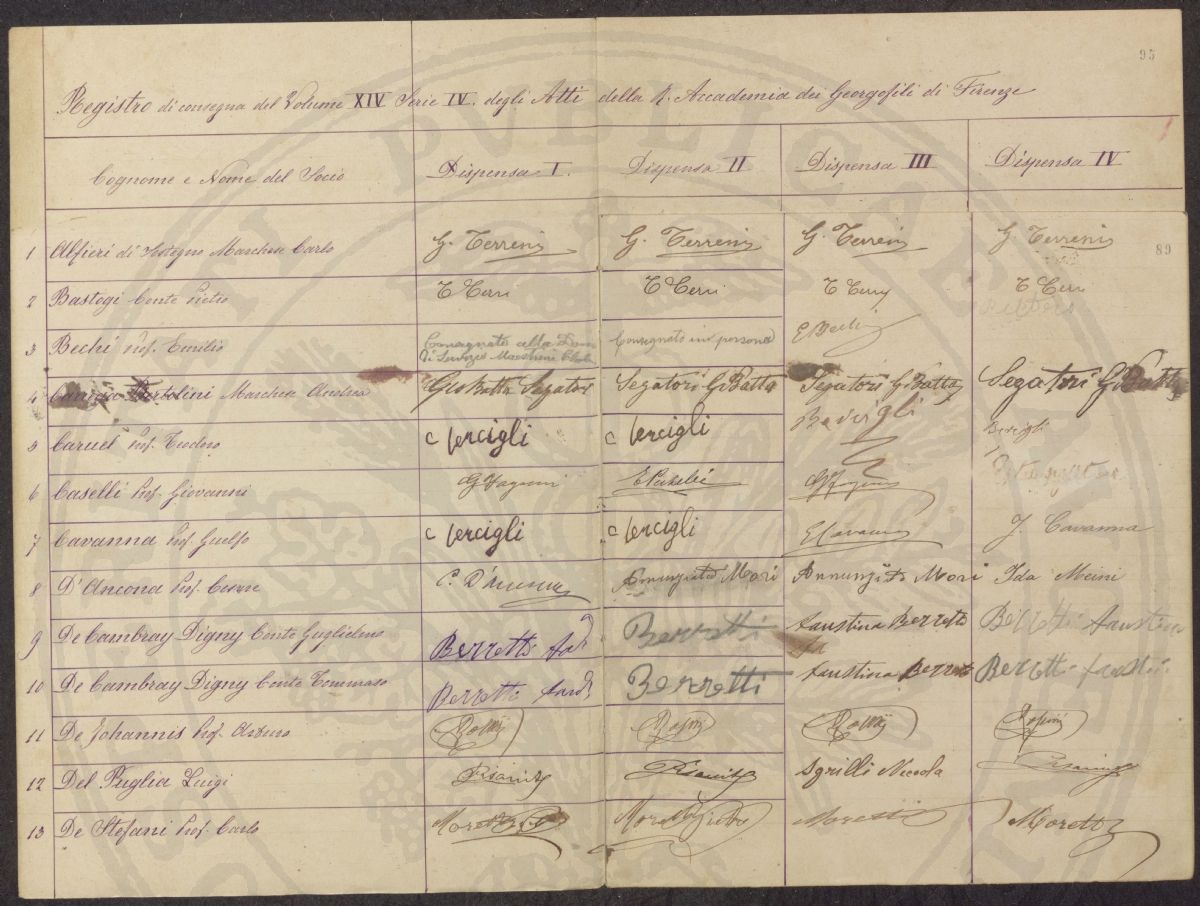 95
Registro di consegna del Volume XIV Serie IV. degli Atti della R. Accademia dei Georgofili di Firenze
Cognome e Nome del Socio Dispensa I. Dispensa II Dispensa III Dispensa IV
89
1 Alfieri di Sostegno Marchese Carlo G. Terreni G. Terreni G. Terreni G. Terreni
2 Bastogi Conte Pietro T Cerri T Cerri T Cerri T Cerri
3 Bechi Prof. Emilio Consegnato alla Consegnato in persona E Bechi
4 Bertolini Marchese Andrea Segatori Segatori GBatta Segatori GBatta Segatori GBatta
5 Caruel Prof. Teodoro C Vercigli C Vercigli Vercigli Vercigli
6 Caselli Prof. Giovanni
7 Cavanna Prof. Guelfo C Vercigli C Vercigli E Cavanna J. Cavanna
8 D'Ancona Prof. Cesare C. D'Ancona Annunziata Mori Annunziata Mori Ida Meini
9 De Cambray Digny Conte Guglielmo Berretti Berretti Faustina Berretti Berretti Faustina
10 De Cambray Digny Conte Tommaso Berretti Berretti Faustina Berretti Berretti Faustina
11 De Johannis Prof. Arturo
12 Del Puglia Luigi Pisaniz Sgrilli Niccola
13 De Stefani Prof. Carlo Moretti Moretti Moretti Moretti